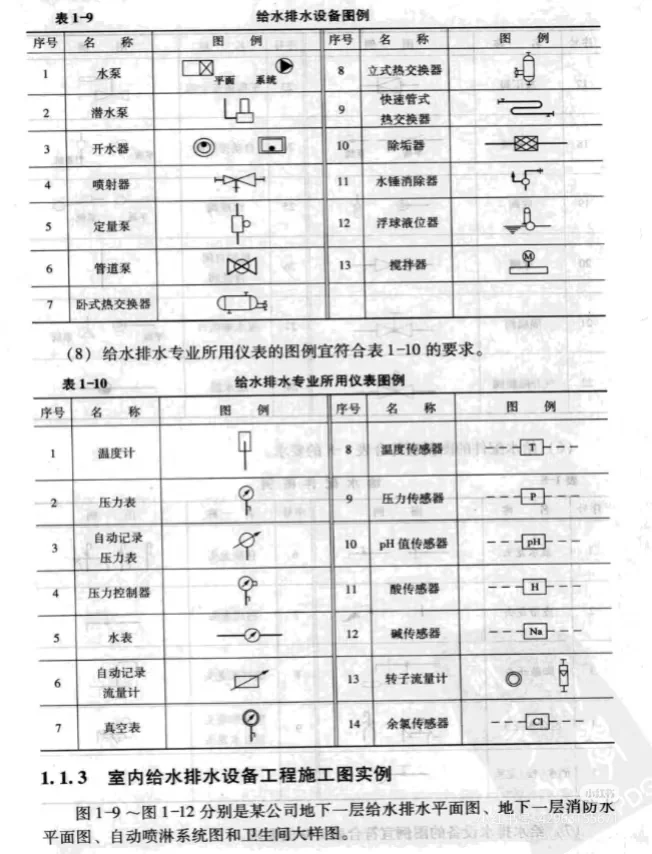 表1-9 给水排水设备图例
序号 名 称 图 例 序号 名 称 图 例
1 水泵 平面 系统 8 立式热交换器
2 潜水泵 9 快速管式
热交换器
3 开水器 10 除垢器
4 喷射器 11 水锤消除器
5 定量泵 12 浮球液位器
6 管道泵 13 搅拌器 M
7 卧式热交换器
(8) 给水排水专业所用仪表的图例宜符合表1-10的要求。
表1-10 给水排水专业所用仪表图例
序号 名 称 图 例 序号 名 称 图 例
1 温度计 8 温度传感器 T
2 压力表 9 压力传感器 P
3 自动记录
压力表 10 pH值传感器 pH
4 压力控制器 11 酸传感器 H
5 水表 12 碱传感器 Na
6 自动记录
流量计 13 转子流量计
7 真空表 14 余氯传感器 Cl
1.1.3 室内给水排水设备工程施工图实例
图1-9～图1-12分别是某公司地下一层给水排水平面图、地下一层消防水
平面图、自动喷淋系统图和卫生间大样图。